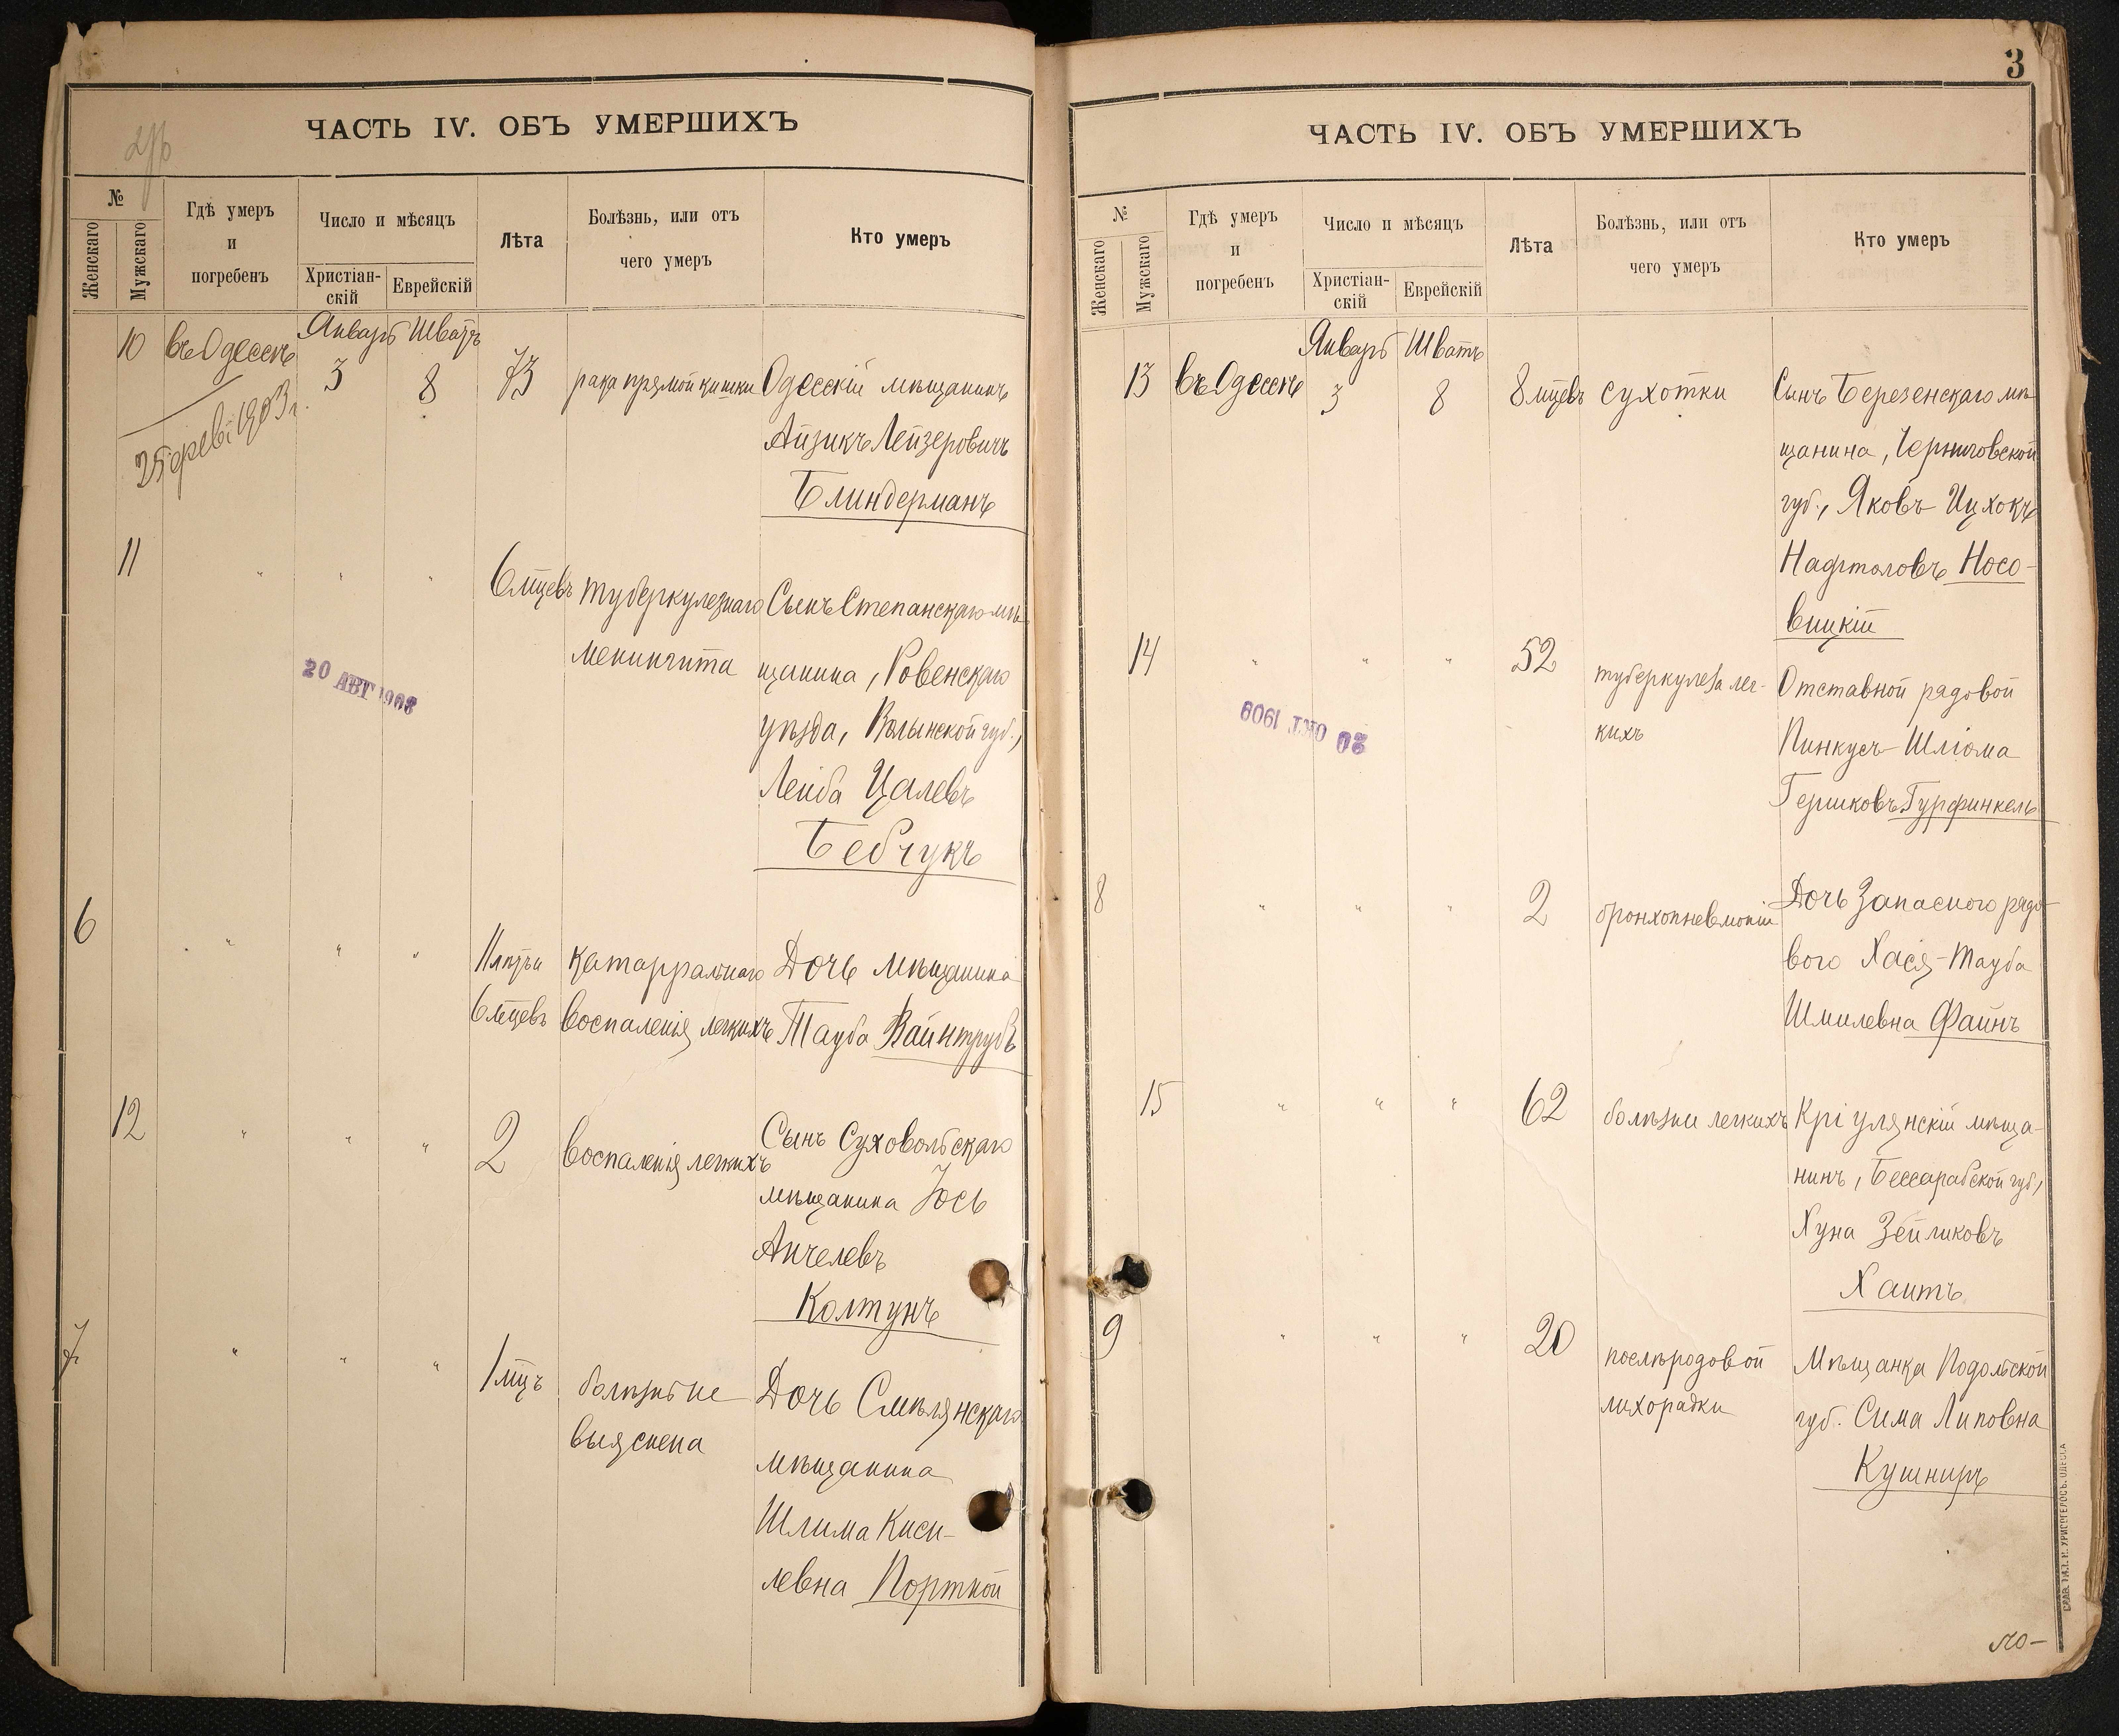 ЧАСТЬ IV. ОБЪ УМЕРШИХЪ
№
Женскаго
Мужскаго
Гдѣ умеръ
и
погребенъ
Число и мѣсяцъ
Христіан-
скій
Еврейскій
Лѣта
Болѣзнь, или отъ
чего умеръ
Кто умеръ
Январь Шватъ
10 въ Одессѣ 3 8 73 рака прямой кишки Одесскій мѣщанинъ
Айзикъ Лейзеровичъ
Блиндерманъ
1903 г.
11 " " " 6 мцевъ туберкулезнаго Сынъ Степанскаго мѣ-
менингита щанина, Ровенскаго
уѣзда, Волынской губ.,
Лейба Цалевъ
Бебчукъ
20 АВГ
6 " " " 11 лѣтъ и катарральнаго Дочь мѣщанина
6 мцевъ воспаленія легкихъ Тауба Вайнтрубъ
12 " " " 2 воспаленія легкихъ Сынъ Суховольскаго
мѣщанина Іось
Анчелевъ
Колтунъ
7 " " " 1 мцъ болѣзнь не Дочь Смѣлянскаго
выяснена мѣщанина
Шлима Киси-
левна Портной
3
ЧАСТЬ IV. ОБЪ УМЕРШИХЪ
№
Женскаго
Мужскаго
Гдѣ умеръ
и
погребенъ
Число и мѣсяцъ
Христіан-
скій
Еврейскій
Лѣта
Болѣзнь, или отъ
чего умеръ
Кто умеръ
Январь Шватъ
13 въ Одессѣ 3 8 8 мцевъ сухотки Сынъ Березенскаго мѣ-
щанина, Черниговской
губ., Яковъ-Ицхокъ
Нафтоловъ Носо-
вицкій
14 " " " 52 туберкулеза лег- Отставной рядовой
кихъ Пинкусъ-Шліома
Гершковъ Гурфинкель
20 ОКТ. 1909
8 " " " 2 бронхопневмоніи Дочь Запасного рядо-
вого Хася-Тауба
Шмилевна Файнъ
15 " " " 62 болѣзни легкихъ Кріулянскій мѣща-
нинъ, Бессарабской губ.,
Хуна Зейликовъ
Хаитъ
9 " " " 20 послѣродовой Мѣщанка Подольской
лихорадки губ. Сима Липовна
Кушниръ